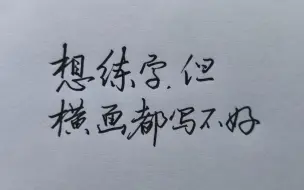 想练字.但
横画都写不好